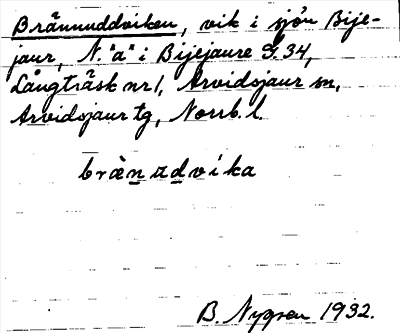 Brännuddviken, vik i sjön Bije-
jaur, N. "a" i Bijejaure G. 34,
Långträsk nr 1, Arvidsjaur sn,
Arvidsjaur tg, Norrb. l.
brànudvíka
B. Nygren 1932.